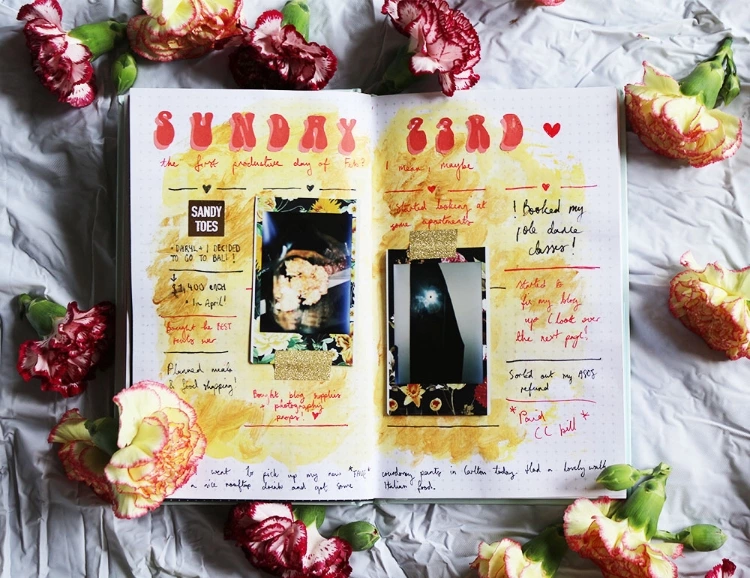 SUNDAY 23RD
the first productive day of Feb?
I mean, maybe
SANDY
TOES
DARYL + I DECIDED
TO GO TO BALI!
$1,400 each
in April!
Bought the BEST
ever
Planned meals
& food shopping!
Bought blog supplies
+ photography
props!
Started looking at
some apartments
! Booked my
pole dance
classes!
Started to
fix my blog
up (look over
the next page!
Sorted out my ASOS
refund
* Paid *
CC bill
went to pick up my new *FAVE* corduroy pants in Carlton today. Had a lovely walk
a nice rooftop drink and got some Italian food.